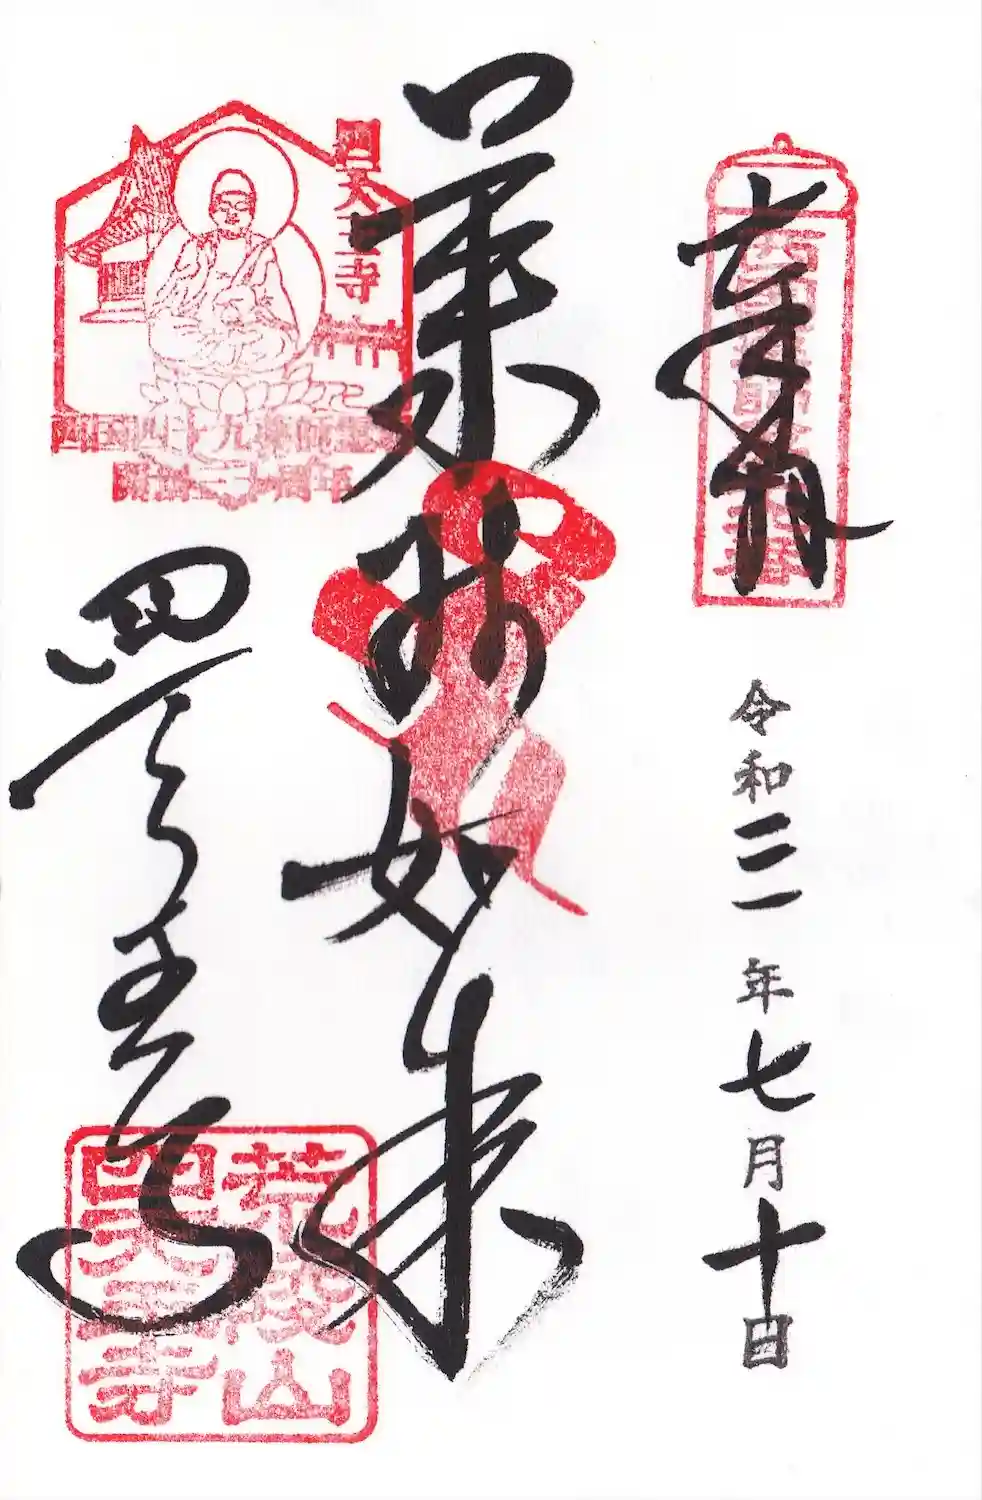 令和三年七月十日
薬師如来
四天王寺
西国四十九薬師霊場
開創三十周年
四天王寺
荒陵山
四天王寺